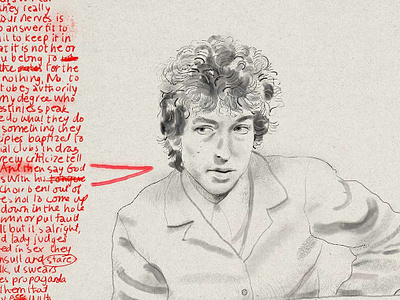 they really
our nerves is
o answer fit to
il to keep it in
at it is not he or
u belong to
the rules for the
nothing, Ma. to
t obey authority
my degree who
estinies speak
e do what they do
something they
iples baptized to
ial clubs in drag
reely criticize tell
And then say God
s With his tongue
choir bent out of
res not to come up
down in the hole
m nor put fault
ll but it's alright,
d lady judges
ed in sex they
nsult and stare
lk, it swears
es propaganda
them that